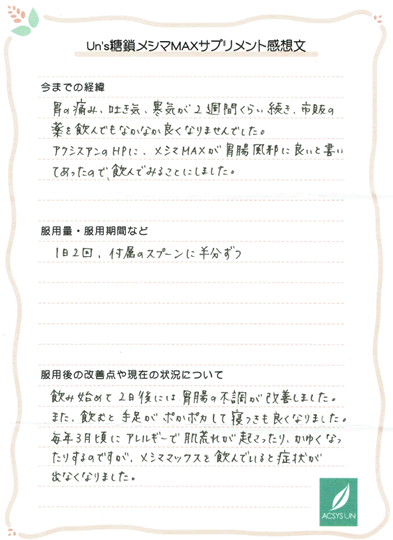 Un's糖鎖メシマMAXサプリメント感想文
今までの経緯
胃の痛み、吐き気、寒気が2週間くらい続き、市販の
薬を飲んでもなかなか良くなりませんでした。
アクシスアンのHPに、メシマMAXが胃腸風邪に良いと書い
てあったので、飲んでみることにしました。
服用量・服用期間など
1日2回、付属のスプーンに半分ずつ
服用後の改善点や現在の状況について
飲み始めて2日後には胃腸の不調が改善しました。
また、飲むと手足がポカポカして寝つきも良くなりました。
毎年3月頃にアレルギーで肌荒れが起こったり、かゆくなっ
たりするのですが、メシママックスを飲んでいると症状が
出なくなりました。
ACSYSUN